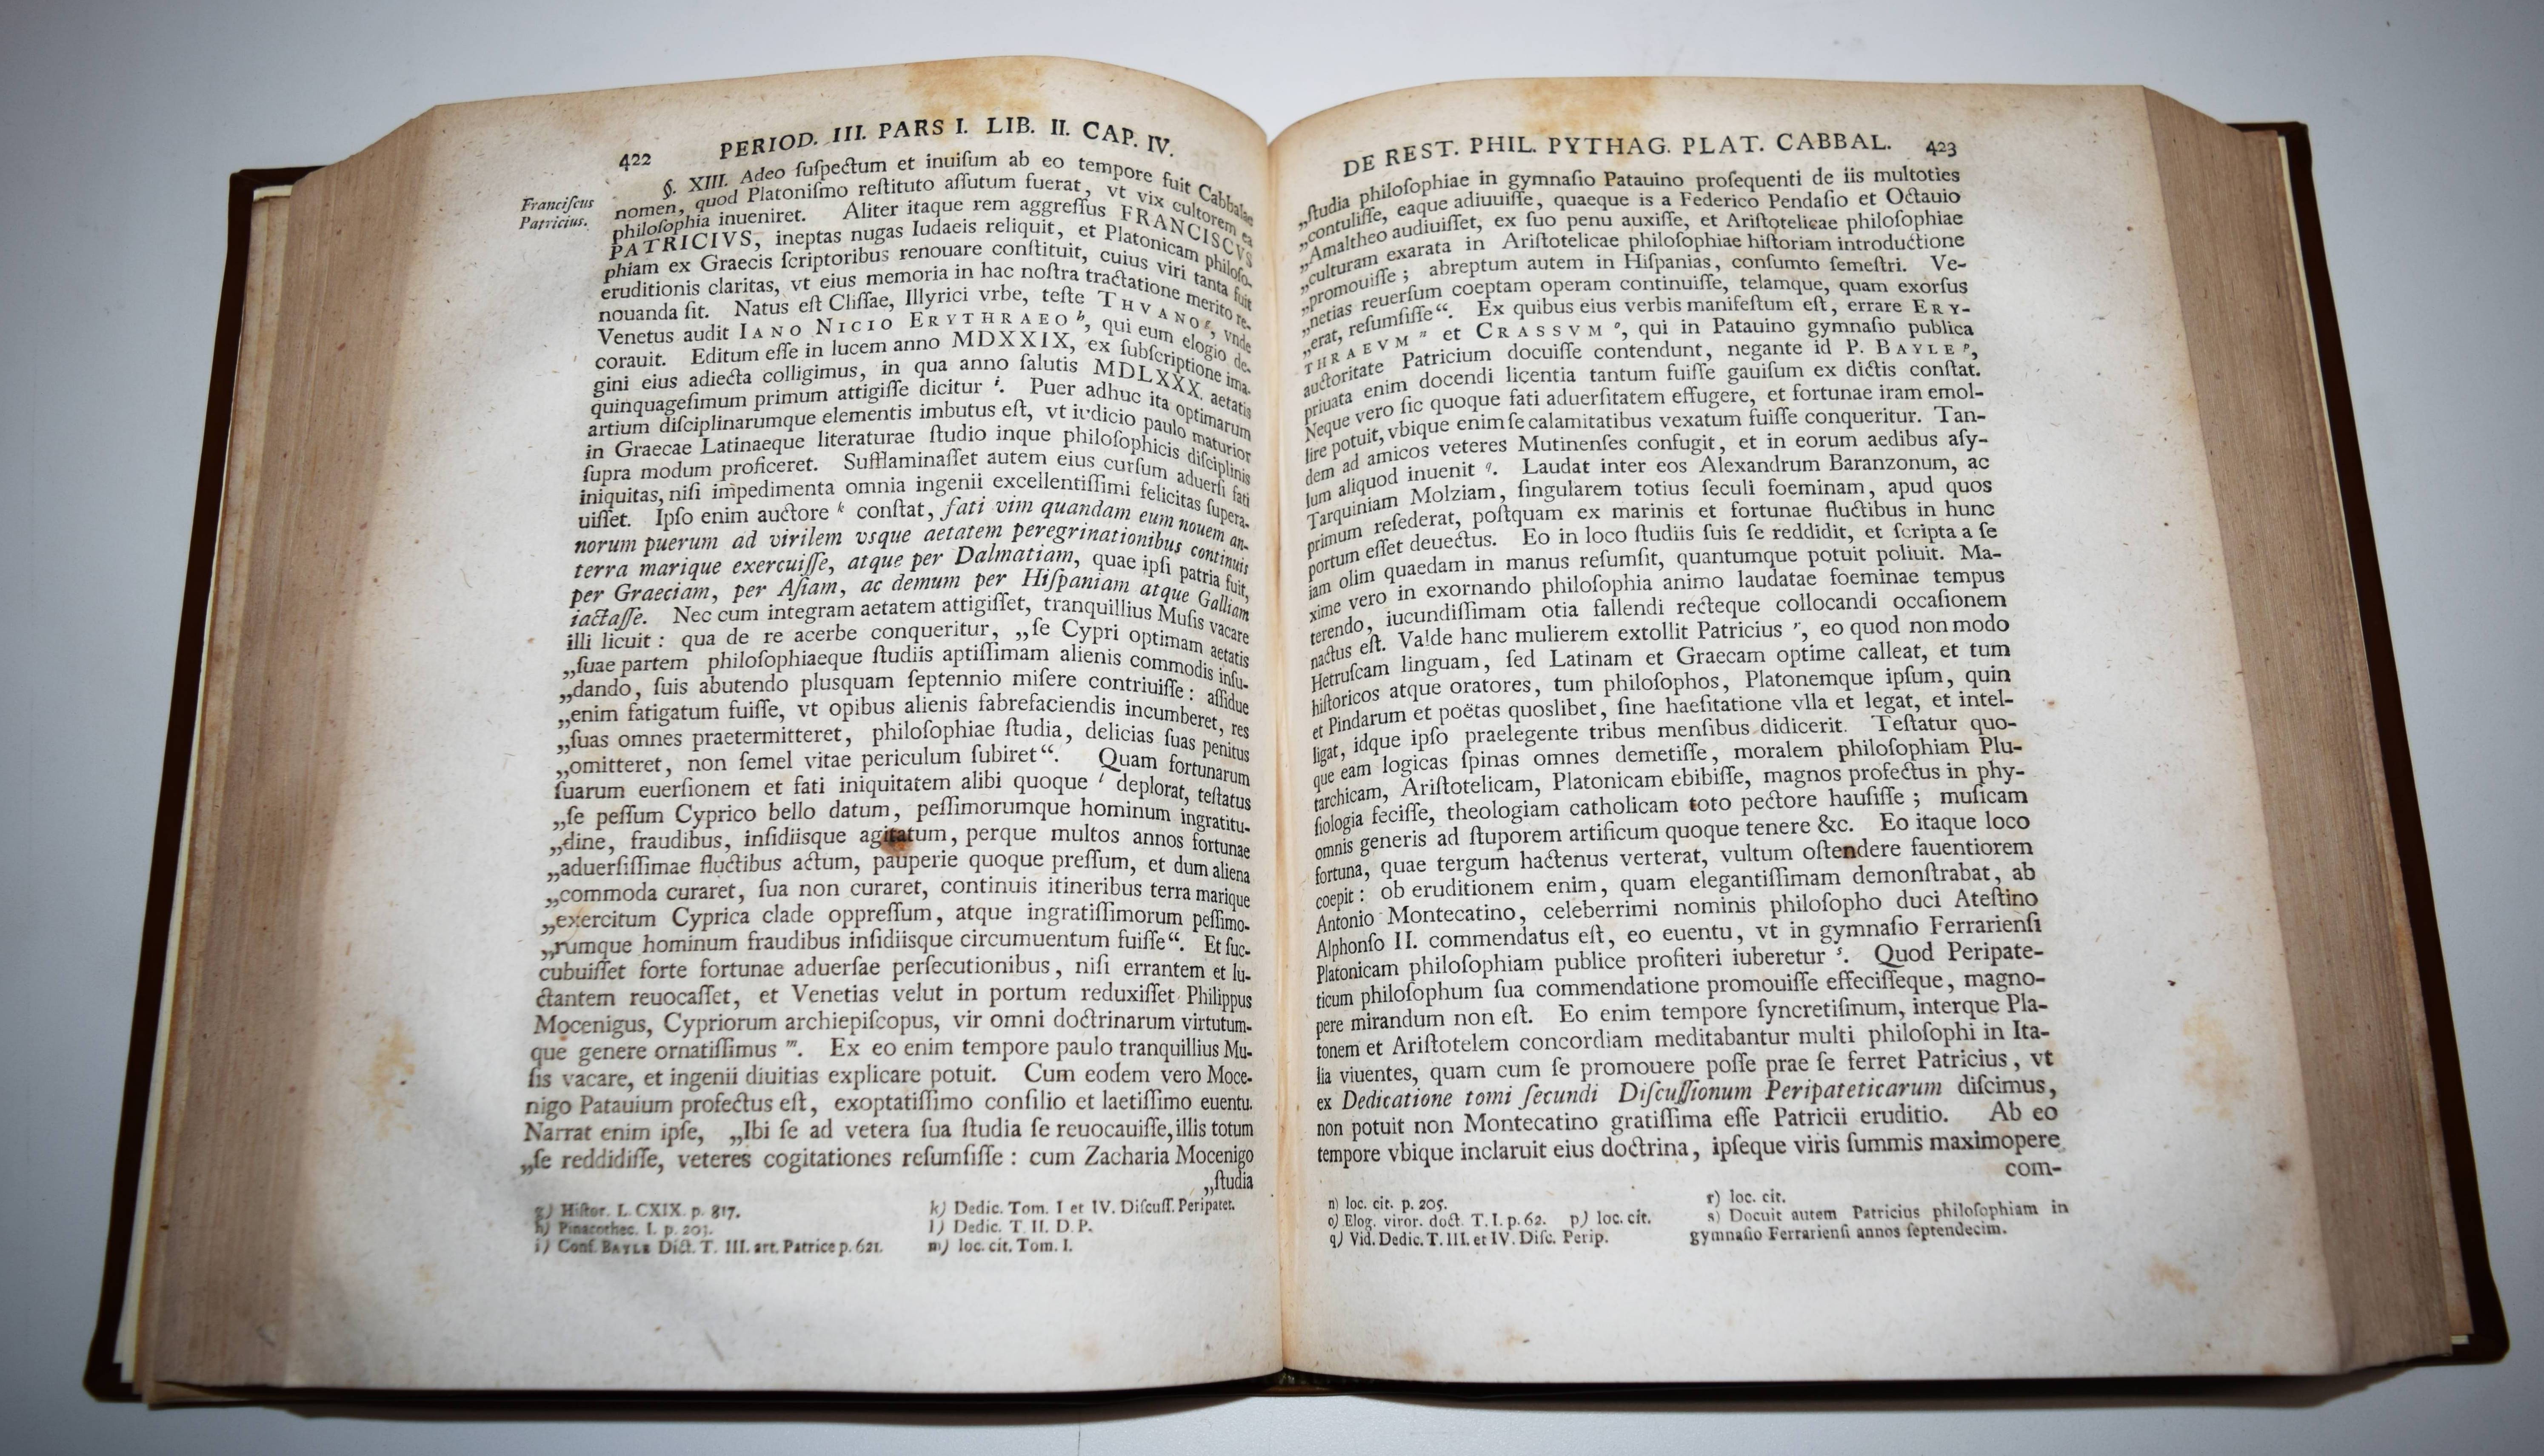 422 PERIOD. III. PARS I. LIB. II. CAP. IV.
Franciſcus
Patricius.
§. XIII. Adeo ſuſpectum et inuiſum ab eo tempore fuit Cabbalae
nomen, quod Platoniſmo reſtituto aſſutum fuerat, vt vix cultorem ea
philoſophia inueniret. Aliter itaque rem aggreſſus FRANCISCVS
PATRICIVS, ineptas nugas Iudaeis reliquit, et Platonicam philoſo-
phiam ex Graecis ſcriptoribus renouare conſtituit, cuius viri tanta fuit
eruditionis claritas, vt eius memoria in hac noſtra tractatione merito re-
nouanda ſit. Natus eſt Cliſſae, Illyrici vrbe, teſte THVANO g, vnde
Venetus audit IANO NICIO ERYTHRAEO h, qui eum elogio de-
corauit. Editum eſſe in lucem anno MDXXIX, ex ſubſcriptione ima-
gini eius adiecta colligimus, in qua anno ſalutis MDLXXX. aetatis
quinquageſimum primum attigiſſe dicitur i. Puer adhuc ita optimarum
artium diſciplinarumque elementis imbutus eſt, vt iudicio paulo maturior
in Graecae Latinaeque literaturae ſtudio inque philoſophicis diſciplinis
ſupra modum proficeret. Sufflaminaſſet autem eius curſum aduerſi fati
iniquitas, niſi impedimenta omnia ingenii excellentiſſimi felicitas ſupera-
uiſſet. Ipſo enim auctore k conſtat, fati vim quandam eum nouem an-
norum puerum ad virilem vsque aetatem peregrinationibus continuis
terra marique exercuiſſe, atque per Dalmatiam, quae ipſi patria fuit,
per Graeciam, per Aſiam, ac demum per Hiſpaniam atque Galliam
iactaſſe. Nec cum integram aetatem attigiſſet, tranquillius Muſis vacare
illi licuit: qua de re acerbe conqueritur, „ſe Cypri optimam aetatis
„ſuae partem philoſophiaeque ſtudiis aptiſſimam alienis commodis inſu-
„dando, ſuis abutendo plusquam ſeptennio miſere contriuiſſe: aſſidue
„enim fatigatum fuiſſe, vt opibus alienis fabrefaciendis incumberet, res
„ſuas omnes praetermitteret, philoſophiae ſtudia, delicias ſuas penitus
„omitteret, non ſemel vitae periculum ſubiret“. Quam fortunarum
ſuarum euerſionem et fati iniquitatem alibi quoque l deplorat, teſtatus
„ſe peſſum Cyprico bello datum, peſſimorumque hominum ingratitu-
„dine, fraudibus, inſidiisque agitatum, perque multos annos fortunae
„aduerſiſſimae fluctibus actum, pauperie quoque preſſum, et dum aliena
„commoda curaret, ſua non curaret, continuis itineribus terra marique
„exercitum Cyprica clade oppreſſum, atque ingratiſſimorum peſſimo-
„rumque hominum fraudibus inſidiisque circumuentum fuiſſe“. Et ſuc-
cubuiſſet forte fortunae aduerſae perſecutionibus, niſi errantem et lu-
ctantem reuocaſſet, et Venetias velut in portum reduxiſſet Philippus
Mocenigus, Cypriorum archiepiſcopus, vir omni doctrinarum virtutum-
que genere ornatiſſimus m. Ex eo enim tempore paulo tranquillius Mu-
ſis vacare, et ingenii diuitias explicare potuit. Cum eodem vero Moce-
nigo Patauium profectus eſt, exoptatiſſimo conſilio et laetiſſimo euentu.
Narrat enim ipſe, „Ibi ſe ad vetera ſua ſtudia ſe reuocauiſſe, illis totum
„ſe reddidiſſe, veteres cogitationes reſumſiſſe: cum Zacharia Mocenigo
„ſtudia
g) Hiſtor. L. CXIX. p. 817.
h) Pinacothec. I. p. 203.
i) Conf. BAYLE Dict. T. III. art. Patrice p. 621.
k) Dedic. Tom. I et IV. Diſcuſſ. Peripatet.
l) Dedic. T. II. D. P.
m) loc. cit. Tom. I.
DE REST. PHIL. PYTHAG. PLAT. CABBAL. 423
„ſtudia philoſophiae in gymnaſio Patauino proſequenti de iis multoties
„contuliſſe, eaque adiuuiſſe, quaeque is a Federico Pendaſio et Octauio
„Amaltheo audiuiſſet, ex ſuo penu auxiſſe, et Ariſtotelicae philoſophiae
„culturam exarata in Ariſtotelicae philoſophiae hiſtoriam introductione
„promouiſſe; abreptum autem in Hiſpanias, conſumto ſemeſtri. Ve-
„netias reuerſum coeptam operam continuiſſe, telamque, quam exorſus
„erat, reſumſiſſe“. Ex quibus eius verbis manifeſtum eſt, errare ERY-
THRAEVM n et CRASSVM o, qui in Patauino gymnaſio publica
auctoritate Patricium docuiſſe contendunt, negante id P. BAYLE p,
priuata enim docendi licentia tantum fuiſſe gauiſum ex dictis conſtat.
Neque vero ſic quoque fati aduerſitatem effugere, et fortunae iram emol-
lire potuit, vbique enim ſe calamitatibus vexatum fuiſſe conqueritur. Tan-
dem ad amicos veteres Mutinenſes confugit, et in eorum aedibus aſy-
lum aliquod inuenit q. Laudat inter eos Alexandrum Baranzonum, ac
Tarquiniam Molziam, ſingularem totius ſeculi foeminam, apud quos
primum reſederat, poſtquam ex marinis et fortunae fluctibus in hunc
portum eſſet deuectus. Eo in loco ſtudiis ſuis ſe reddidit, et ſcripta a ſe
iam olim quaedam in manus reſumſit, quantumque potuit poliuit. Ma-
xime vero in exornando philoſophia animo laudatae foeminae tempus
terendo, iucundiſſimam otia fallendi recteque collocandi occaſionem
nactus eſt. Valde hanc mulierem extollit Patricius r, eo quod non modo
Hetruſcam linguam, ſed Latinam et Graecam optime calleat, et tum
hiſtoricos atque oratores, tum philoſophos, Platonemque ipſum, quin
et Pindarum et poëtas quoslibet, ſine haeſitatione vlla et legat, et intel-
ligat, idque ipſo praelegente tribus menſibus didicerit. Teſtatur quo-
que eam logicas ſpinas omnes demetiſſe, moralem philoſophiam Plu-
tarchicam, Ariſtotelicam, Platonicam ebibiſſe, magnos profectus in phy-
ſiologia feciſſe, theologiam catholicam toto pectore hauſiſſe; muſicam
omnis generis ad ſtuporem artificum quoque tenere &c. Eo itaque loco
fortuna, quae tergum hactenus verterat, vultum oſtendere fauentiorem
coepit: ob eruditionem enim, quam elegantiſſimam demonſtrabat, ab
Antonio Montecatino, celeberrimi nominis philoſopho duci Ateſtino
Alphonſo II. commendatus eſt, eo euentu, vt in gymnaſio Ferrarienſi
Platonicam philoſophiam publice profiteri iuberetur s. Quod Peripate-
ticum philoſophum ſua commendatione promouiſſe effeciſſeque, magno-
pere mirandum non eſt. Eo enim tempore ſyncretiſmum, interque Pla-
tonem et Ariſtotelem concordiam meditabantur multi philoſophi in Ita-
lia viuentes, quam cum ſe promouere poſſe prae ſe ferret Patricius, vt
ex Dedicatione tomi ſecundi Diſcuſſionum Peripateticarum diſcimus,
non potuit non Montecatino gratiſſima eſſe Patricii eruditio. Ab eo
tempore vbique inclaruit eius doctrina, ipſeque viris ſummis maximopere
com-
n) loc. cit. p. 205.
o) Elog. viror. doct. T. I. p. 62. p) loc. cit.
q) Vid. Dedic. T. III. et IV. Diſc. Perip.
r) loc. cit.
s) Docuit autem Patricius philoſophiam in
gymnaſio Ferrarienſi annos ſeptendecim.